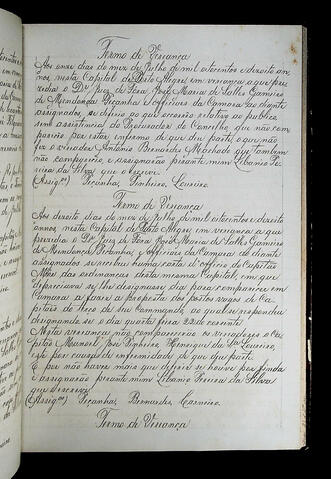 Termo de Vereança
Aos onze dias do mez de Julho de mil oitocentos e dezoito an-
nos nesta Capital de Porto Alegre, em vereança a que pre-
zedio o Dr. Juiz de Fóra José Maria de Salles Gameiro
de Mendonça Peçanha e officiaes da Camara ao diante
assignados, se deferio ao que occorreo relativo ao publico
sem assistencia do Procurador do Concelho que não com-
pareceo, por estar enfermo de que deu parte, o que não
fez o vereador Antonio Bernardes Machado que tambem
não compareceo e assignarão perante mim Libanio Pe-
reira da Silva que o escrevi.
(Assigos) Peçanha, Pinheiro, Loureiro.
Termo de Vereança
Aos dezoito dias do mez de Julho de mil oitocentos e dezoito
annos nesta Capital de Porto Alegre, em vereança a que
prezedio o Dr. Juiz de Fóra José Maria de Salles Gameiro
de Mendonça Peçanha, e officiaes da Camara, ao diante
assignados se recebeu huma carta d'officio do Capitão
Mór das ordenanças desta mesma Capital, em que
deprecava se lhe designasse dia para comparecer em
Camara a fazer a proposta dos postos vagos de Ca-
pitães do terço do seu Commando, ao qual se respondeu
designando-se o dia quarta feira 22 do corrente.
Nesta vereança não compareceo os vereadores o Ca-
pitão Manoel José Henrique da Sa Loureiro,
este por cauza de infermidade de que deu parte.
E por não haver mais que deferir se houve por finda
e assignarão perante mim Libanio Pereira da Silva
que escrevi.
(Assigos) Peçanha, Bernardes, Carneiro.
Termo de Vereança